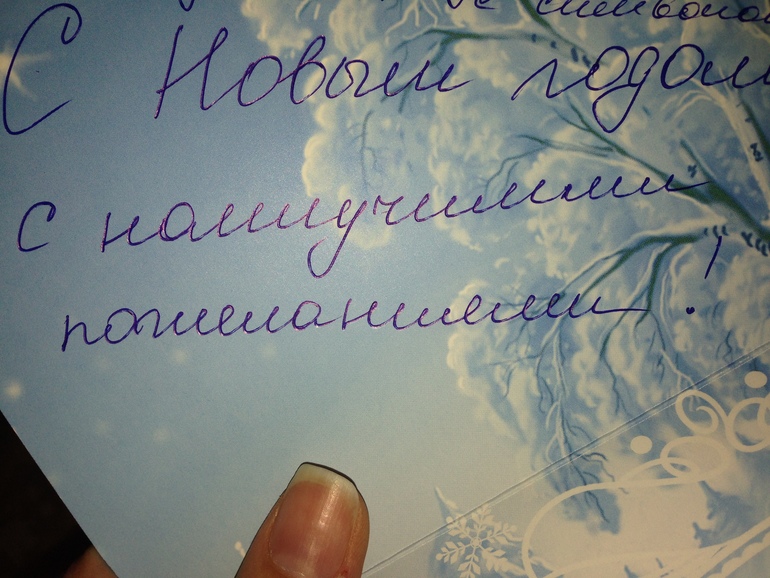 С Новым годом
с наилучшими
пожеланиями!